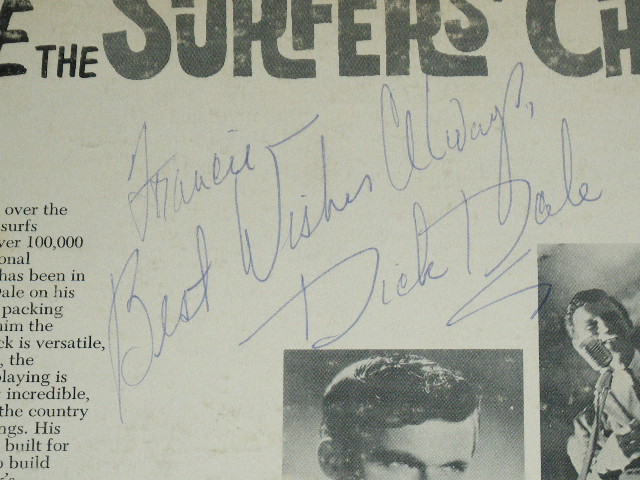 THE SURFERS'
Francie -
Best Wishes Always,
Dick Dale
over the
surfs
ver 100,000
onal
has been in
Dale on his
packing
him the
ck is versatile,
, the
playing is
incredible,
the country
ngs. His
built for
o build